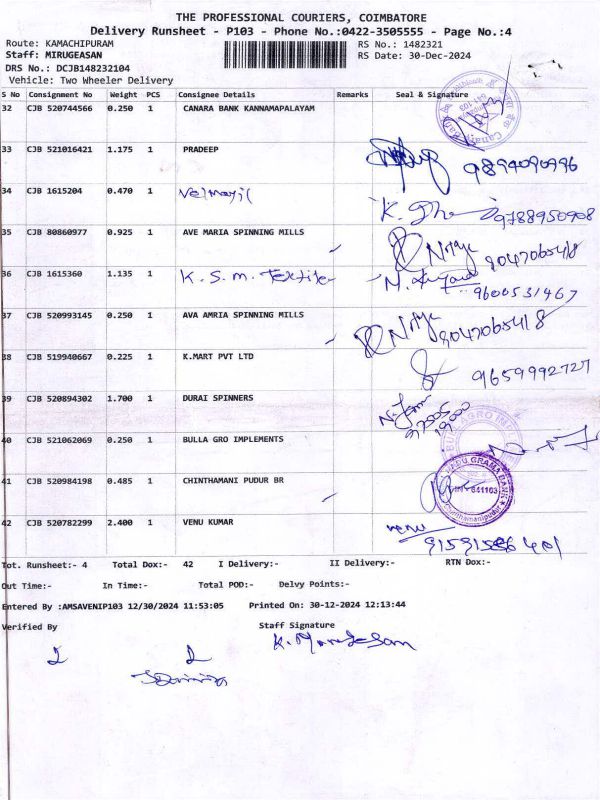 THE PROFESSIONAL COURIERS, COIMBATORE
Delivery Runsheet - P103 - Phone No.:0422-3505555 - Page No.:4
Route: KAMACHIPURAM RS No.: 1482321
Staff: MIRUGEASAN RS Date: 30-Dec-2024
DRS No.: DCJB148232104
Vehicle: Two Wheeler Delivery
S No Consignment No Weight PCS Consignee Details Remarks Seal & Signature
32 CJB 520744566 0.250 1 CANARA BANK KANNAMAPALAYAM
33 CJB 521016421 1.175 1 PRADEEP 9894090996
34 CJB 1615204 0.470 1 9788950908
35 CJB 80860977 0.925 1 AVE MARIA SPINNING MILLS 9047065418
36 CJB 1615360 1.135 1 K.S.M. Textile 9600531467
37 CJB 520993145 0.250 1 AVA AMRIA SPINNING MILLS 9047065418
38 CJB 519940667 0.225 1 K.MART PVT LTD 9659992727
39 CJB 520894302 1.700 1 DURAI SPINNERS
40 CJB 521062069 0.250 1 BULLA GRO IMPLEMENTS
41 CJB 520984198 0.485 1 CHINTHAMANI PUDUR BR
42 CJB 520782299 2.400 1 VENU KUMAR venu
Tot. Runsheet:- 4 Total Dox:- 42 I Delivery:- II Delivery:- RTN Dox:-
Out Time:- In Time:- Total POD:- Delvy Points:-
Entered By :AMSAVENIP103 12/30/2024 11:53:05 Printed On: 30-12-2024 12:13:44
Verified By Staff Signature